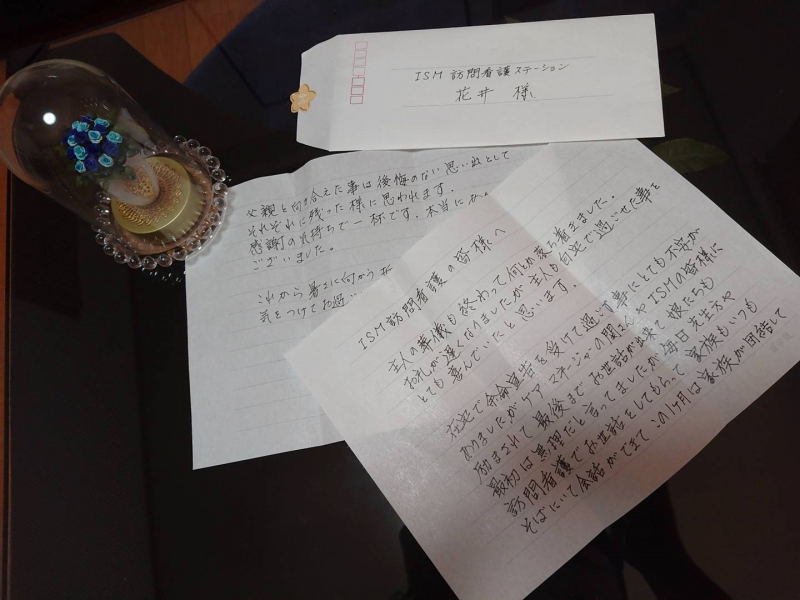 ISM 訪問看護ステーション
花井 様
ISM 訪問看護の皆様へ
主人の葬儀も終わって何とか落ち着きました。
お礼が遅くなりましたが主人も自宅で過ごせた事を
とても喜んでいたと思います。
在宅で余命宣告を受けて過ごす事にとても不安が
ありましたがケアマネージャの関はくやISMの皆様に
励まされて最後までお世話が出来て娘たちも
最初は無理だと言ってましたが毎日先生方や
訪問看護でお世話をしてもらって家族もいつも
そばにいて会話ができてこの1ヶ月は家族が団結して
父親と向き合えた事は後悔のない思い出として
それぞれに残った様に思われます。
感謝の気持ちで一杯です。本当に
ございました。
これから暑さに向かう
気をつけてお過